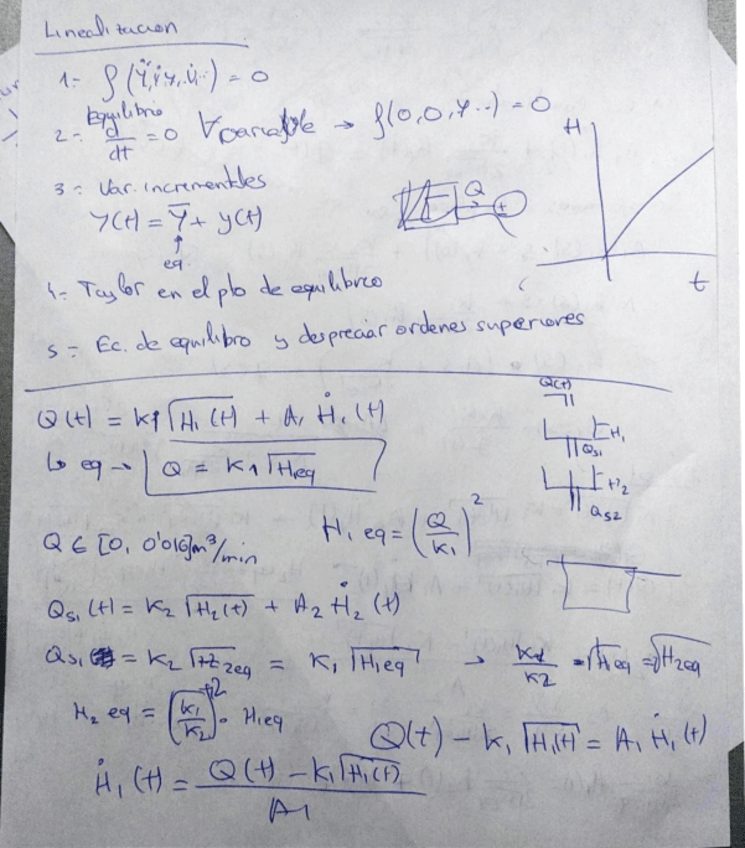 Linealitacion
1- f(Ÿ, Ẏ, Y, U̇..) = 0
2- Equilibrio d/dt = 0 ∀variable → f(0,0,Y..) = 0
H
3- Var. incrementales
Q
Y(t) = Ȳ + y(t)
eq
t
4- Taylor en el pto de equilibrio
5- Ec. de equilibro y despreciar ordenes superiores
Q(t)
Q(t) = K1 √H₁(t) + A₁ Ḣ₁(t)
H₁
Qs1
↳ eq → Q = K1 √Heq
H2
Qs2
H₁ eq = (Q/K₁)²
Q ∈ [0, 0'016]m³/min
Qs₁(t) = K2 √H2(t) + A2 Ḣ2(t)
Qs₁ = K2 √H2eq = K₁ √H₁eq → K1/K2 · √H₁eq = √H2eq
H2 eq = (K₁/K2)² · H₁eq
Q(t) - K₁ √H₁(t) = A₁ Ḣ₁(t)
Ḣ₁(t) = Q(t) - K₁√H₁(t) / A1